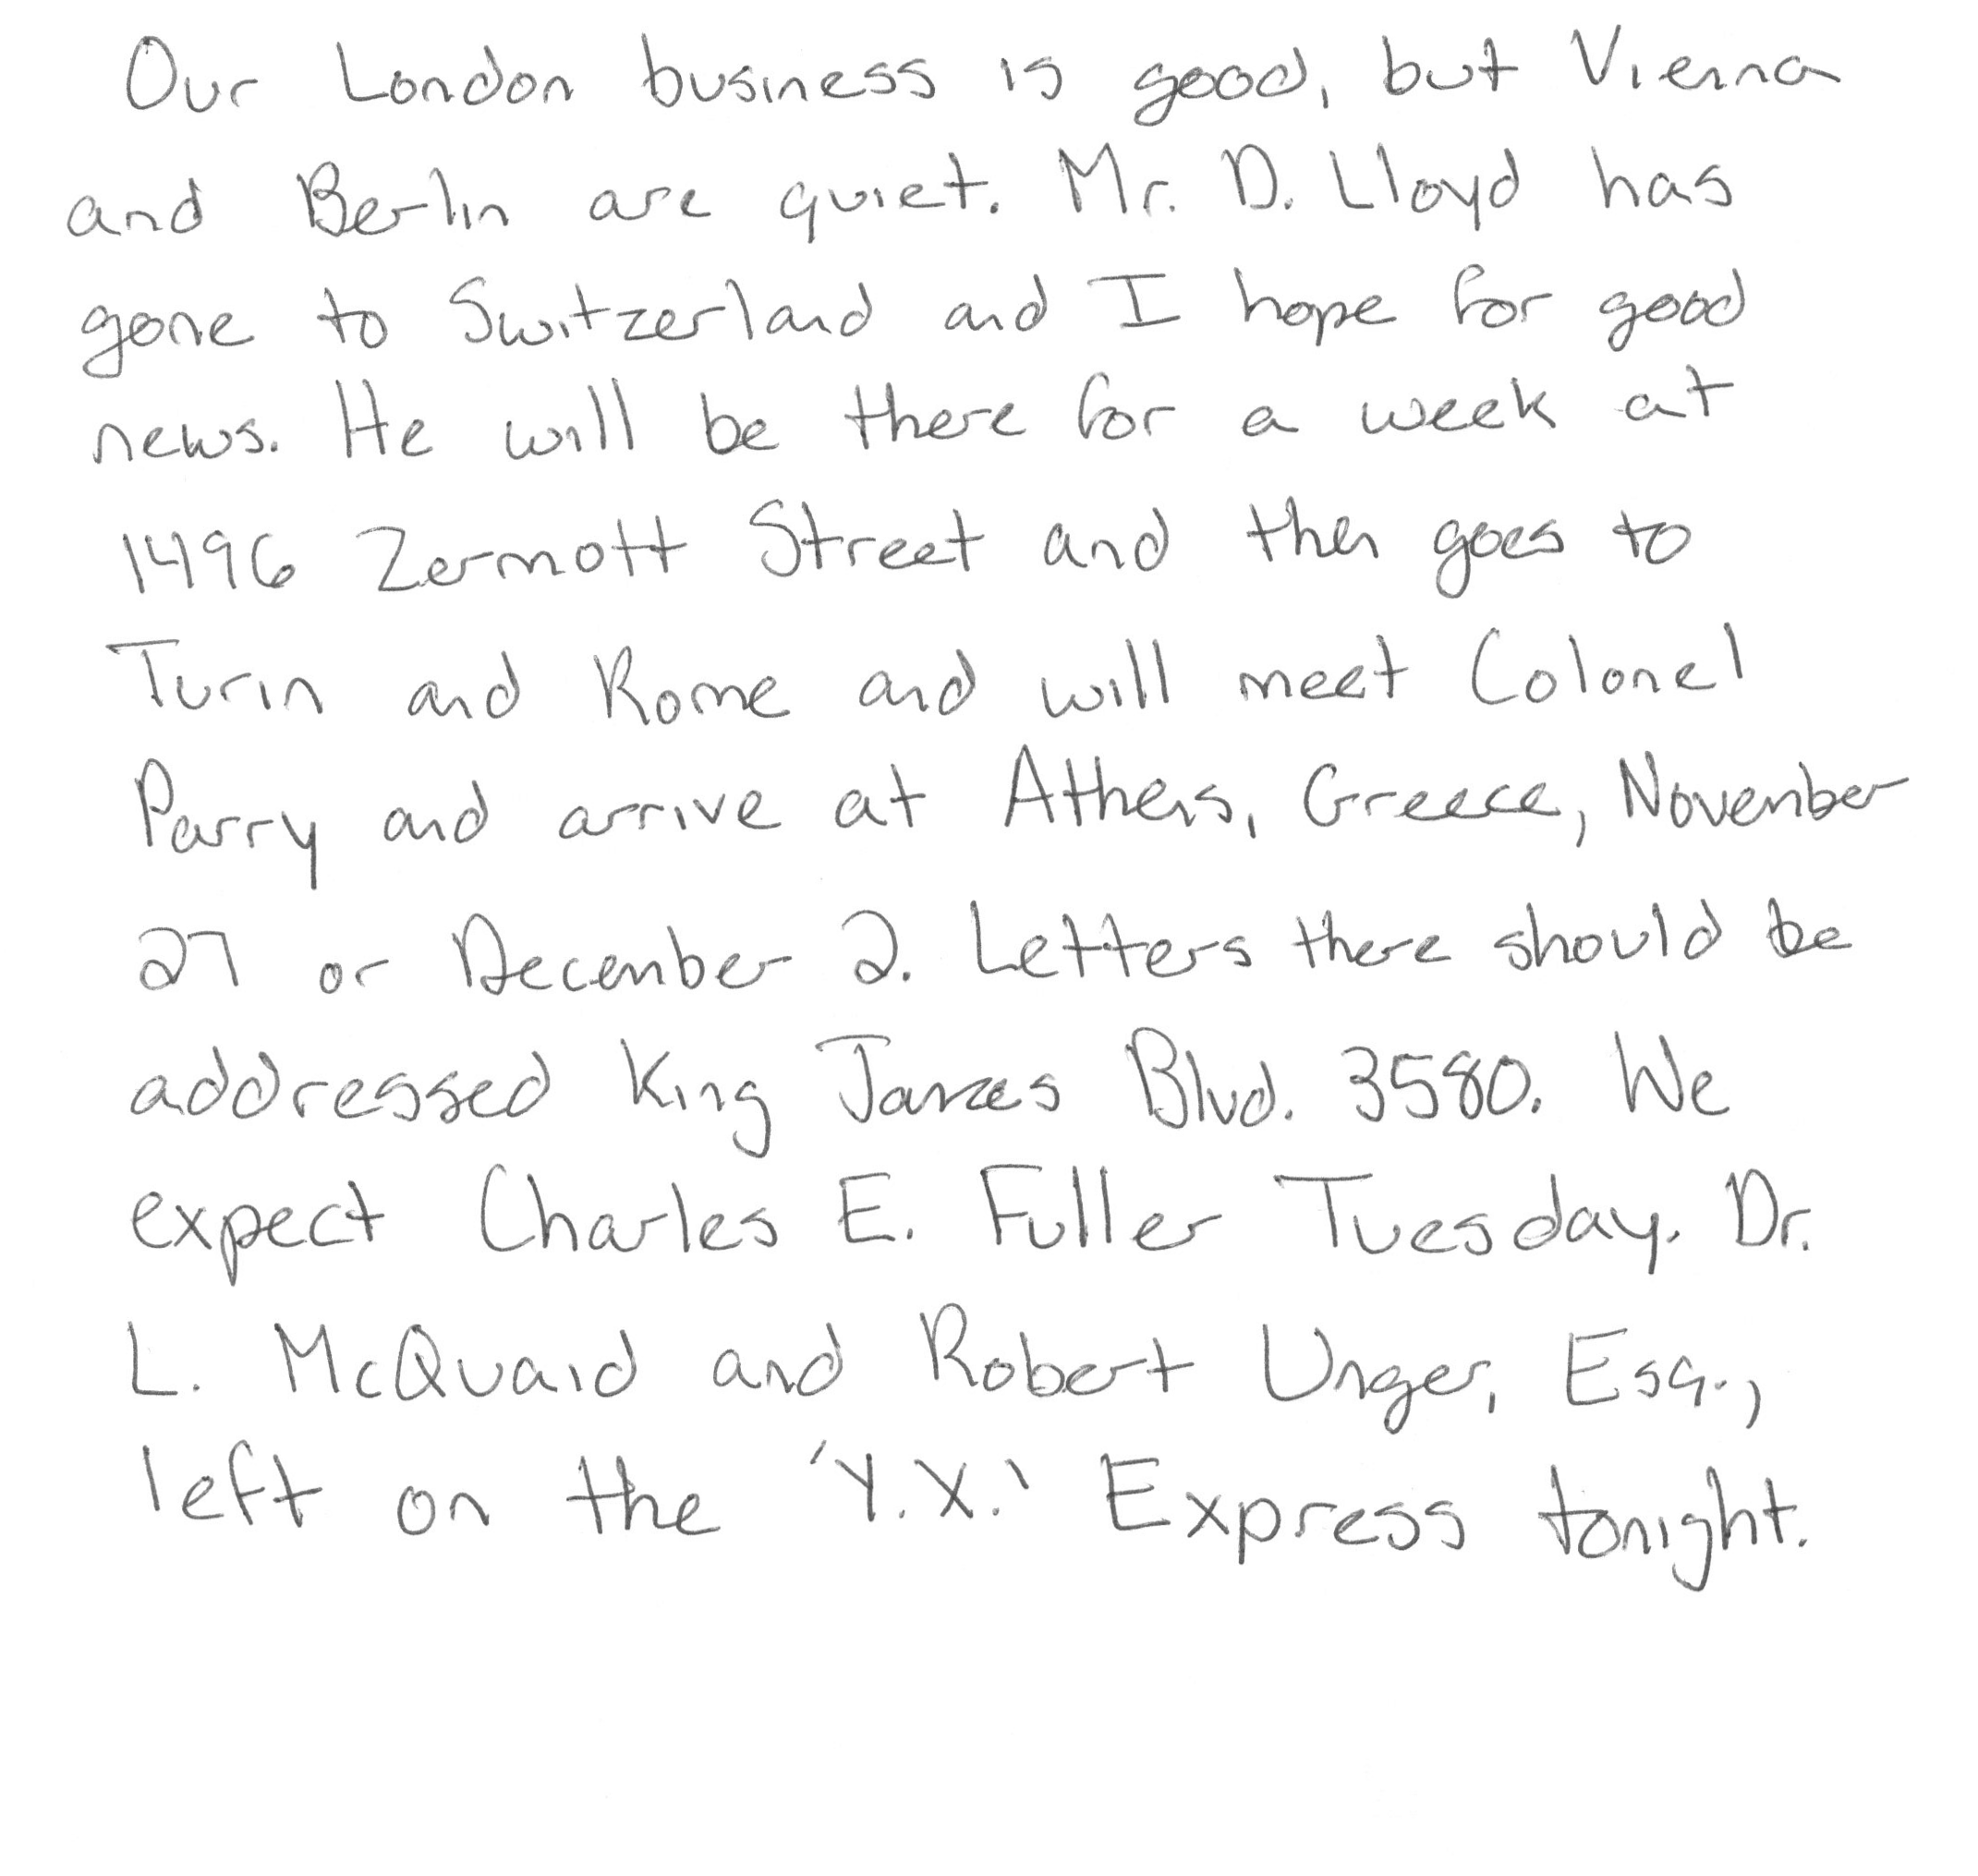 Our London business is good, but Vienna
and Berlin are quiet. Mr. D. Lloyd has
gone to Switzerland and I hope for good
news. He will be there for a week at
1496 Zermott Street and then goes to
Turin and Rome and will meet Colonel
Parry and arrive at Athens, Greece, November
27 or December 2. Letters there should be
addressed King James Blvd. 3580. We
expect Charles E. Fuller Tuesday. Dr.
L. McQuaid and Robert Unger, Esq.,
left on the 'Y.X.' Express tonight.